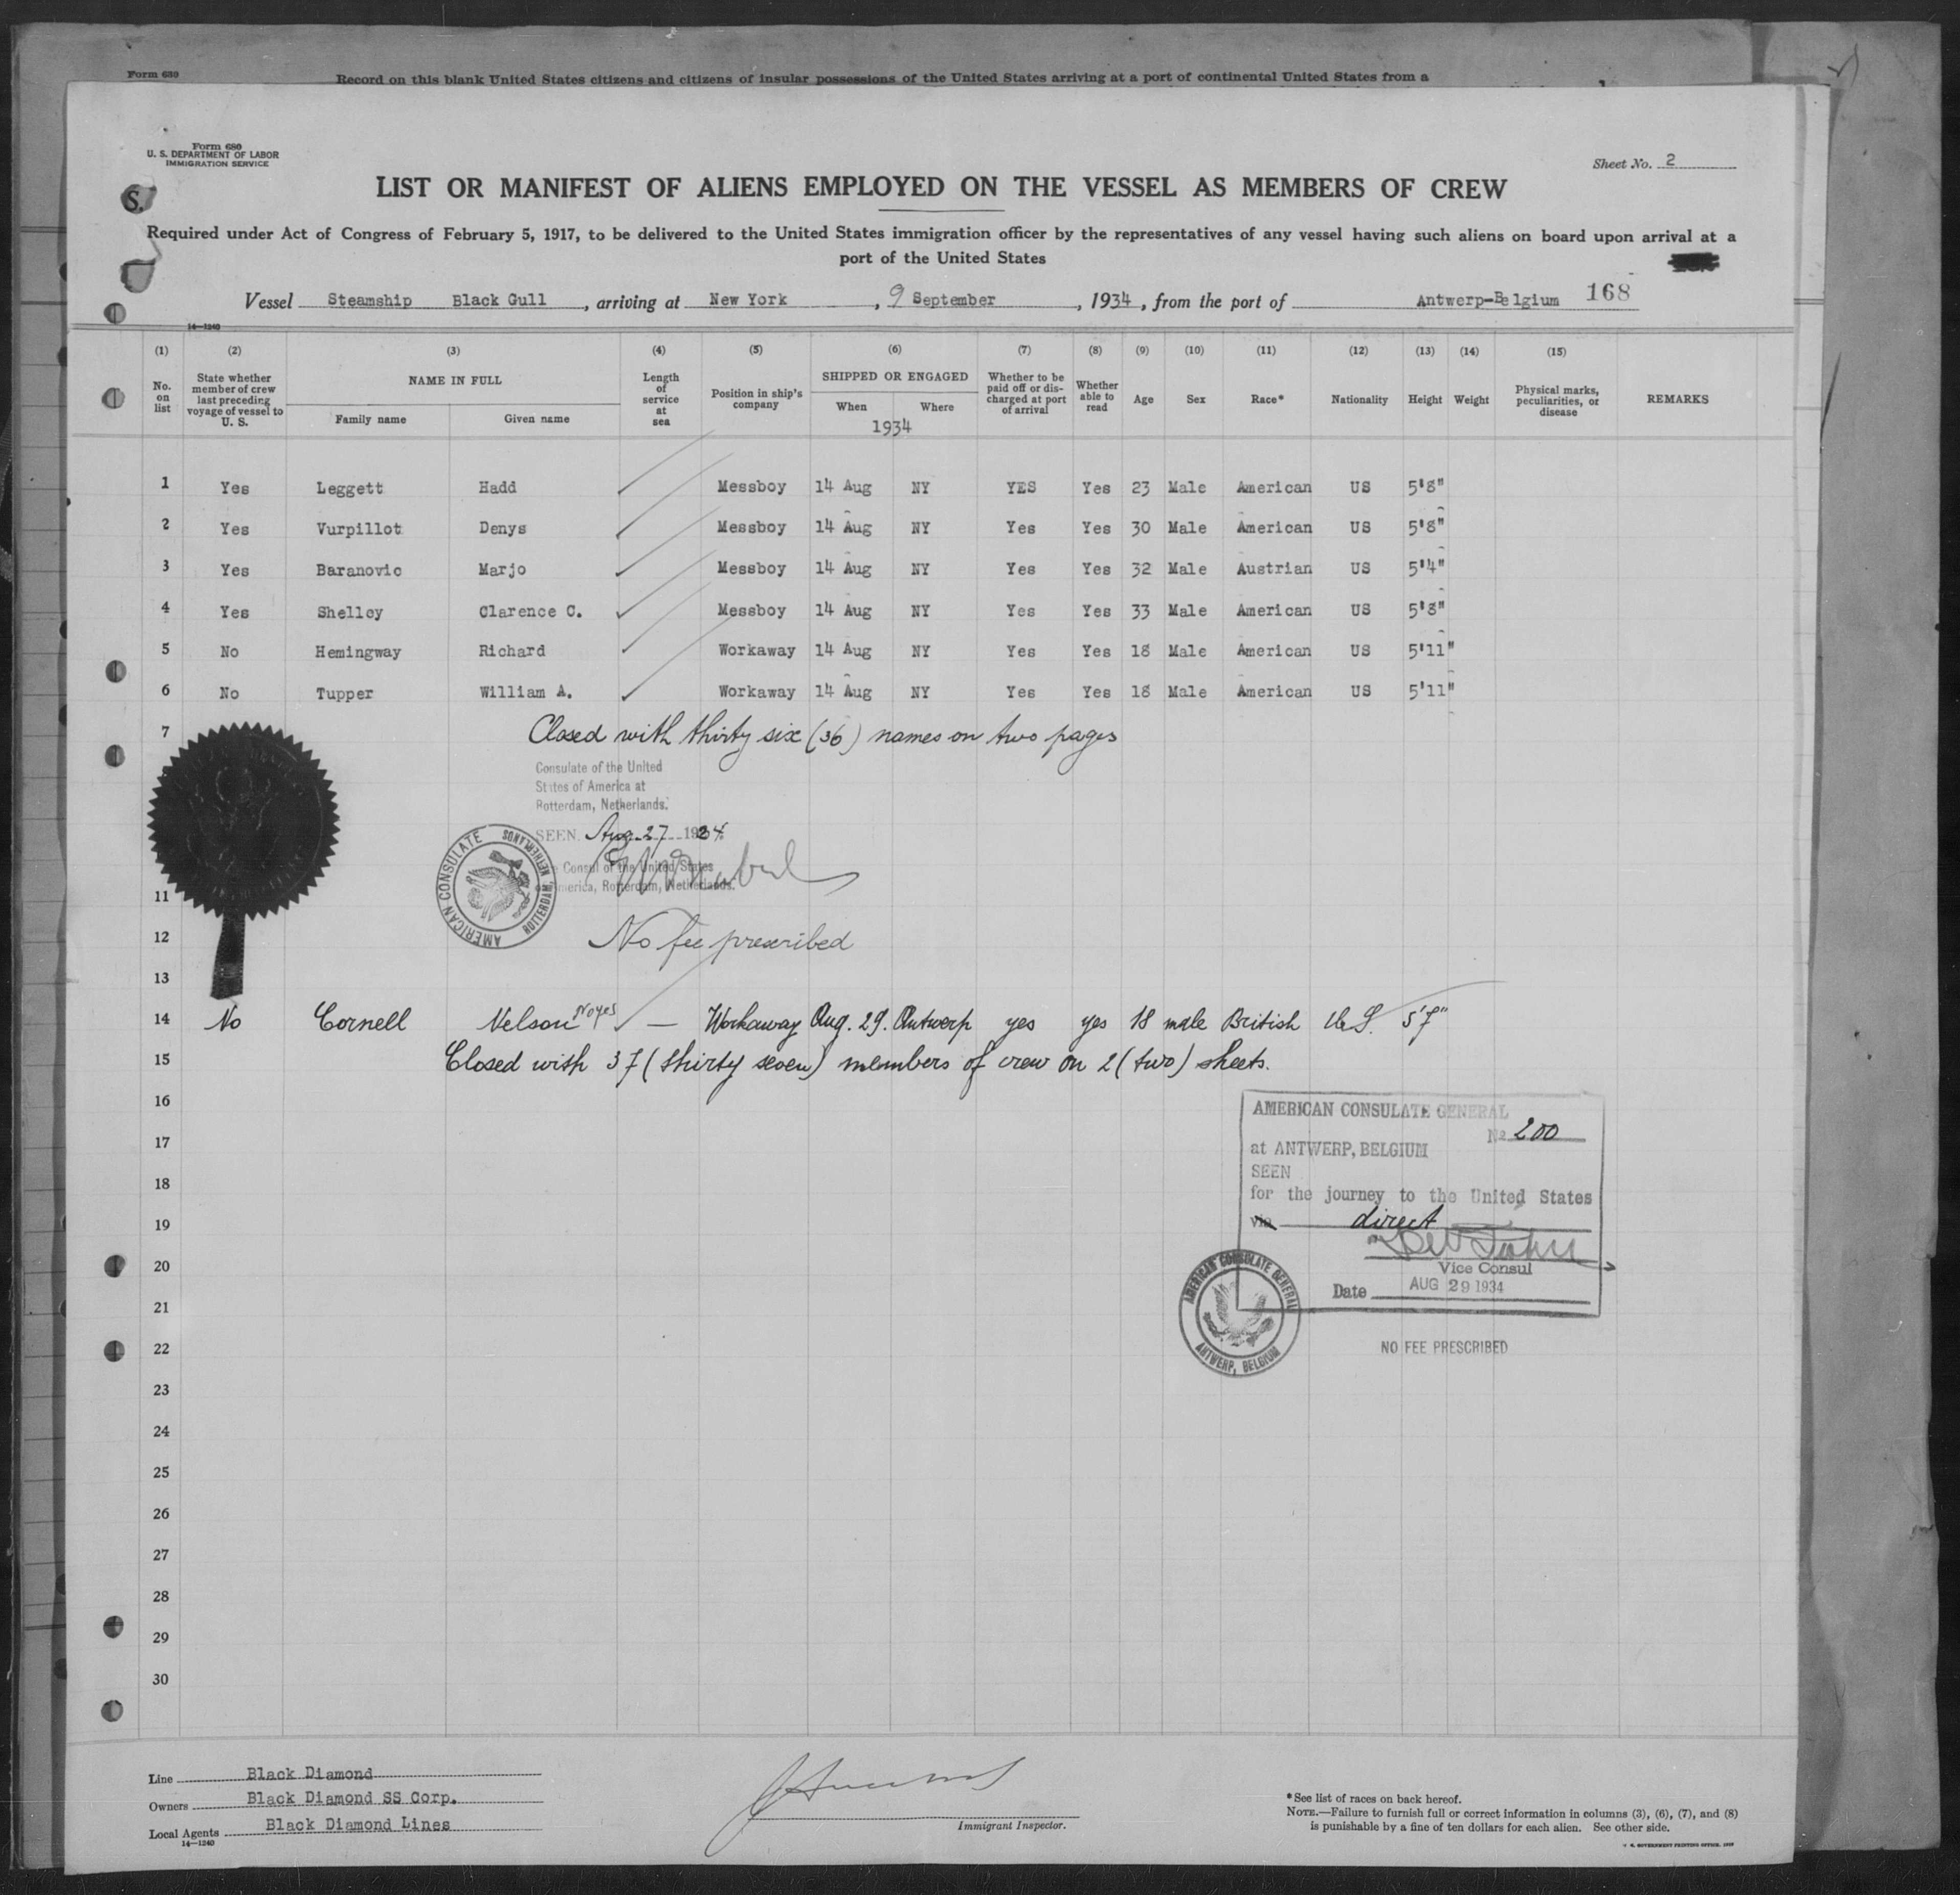 Form 689
Record on this blank United States citizens and citizens of insular possessions of the United States arriving at a port of continental United States from a
Form 680
U. S. DEPARTMENT OF LABOR
IMMIGRATION SERVICE
Sheet No. 2
S.
LIST OR MANIFEST OF ALIENS EMPLOYED ON THE VESSEL AS MEMBERS OF CREW
Required under Act of Congress of February 5, 1917, to be delivered to the United States immigration officer by the representatives of any vessel having such aliens on board upon arrival at a
port of the United States
Vessel Steamship Black Gull, arriving at New York, 9 September, 1934, from the port of Antwerp-Belgium 168
14—1240
(1) (2) (3) (4) (5) (6) (7) (8) (9) (10) (11) (12) (13) (14) (15)
No. on list
State whether member of crew last preceding voyage of vessel to U. S.
NAME IN FULL
Family name
Given name
Length of service at sea
Position in ship's company
SHIPPED OR ENGAGED
When
Where
1934
Whether to be paid off or discharged at port of arrival
Whether able to read
Age
Sex
Race*
Nationality
Height
Weight
Physical marks, peculiarities, or disease
REMARKS
1 Yes Leggett Hadd Messboy 14 Aug NY YES Yes 23 Male American US 5'8"
2 Yes Vurpillot Denys Messboy 14 Aug NY Yes Yes 30 Male American US 5'8"
3 Yes Baranovic Marjo Messboy 14 Aug NY Yes Yes 32 Male Austrian US 5'4"
4 Yes Shelley Clarence C. Messboy 14 Aug NY Yes Yes 33 Male American US 5'8"
5 No Hemingway Richard Workaway 14 Aug NY Yes Yes 18 Male American US 5'11"
6 No Tupper William A. Workaway 14 Aug NY Yes Yes 18 Male American US 5'11"
7 Closed with thirty six (36) names on two pages
Consulate of the United
States of America at
Rotterdam, Netherlands.
SEEN. Aug. 27 1934
Consul of the United States
America, Rotterdam, Netherlands.
AMERICAN CONSULATE ROTTERDAM, NETHERLANDS
11
12 No fee prescribed
13
14 No Cornell Nelson Noyes — Workaway Aug. 29. Antwerp yes yes 18 male British U.S. 5'7"
15 Closed with 37 (thirty seven) members of crew on 2 (two) sheets.
16
AMERICAN CONSULATE GENERAL
No 200
17
at ANTWERP, BELGIUM
SEEN
18
for the journey to the United States
19
via direct
20
Vice Consul
Date AUG 29 1934
AMERICAN CONSULATE GENERAL ANTWERP, BELGIUM
21
22
NO FEE PRESCRIBED
23
24
25
26
27
28
29
30
Line Black Diamond
Owners Black Diamond SS Corp.
Local Agents Black Diamond Lines
14—1240
Immigrant Inspector.
*See list of races on back hereof.
NOTE.—Failure to furnish full or correct information in columns (3), (6), (7), and (8)
is punishable by a fine of ten dollars for each alien. See other side.